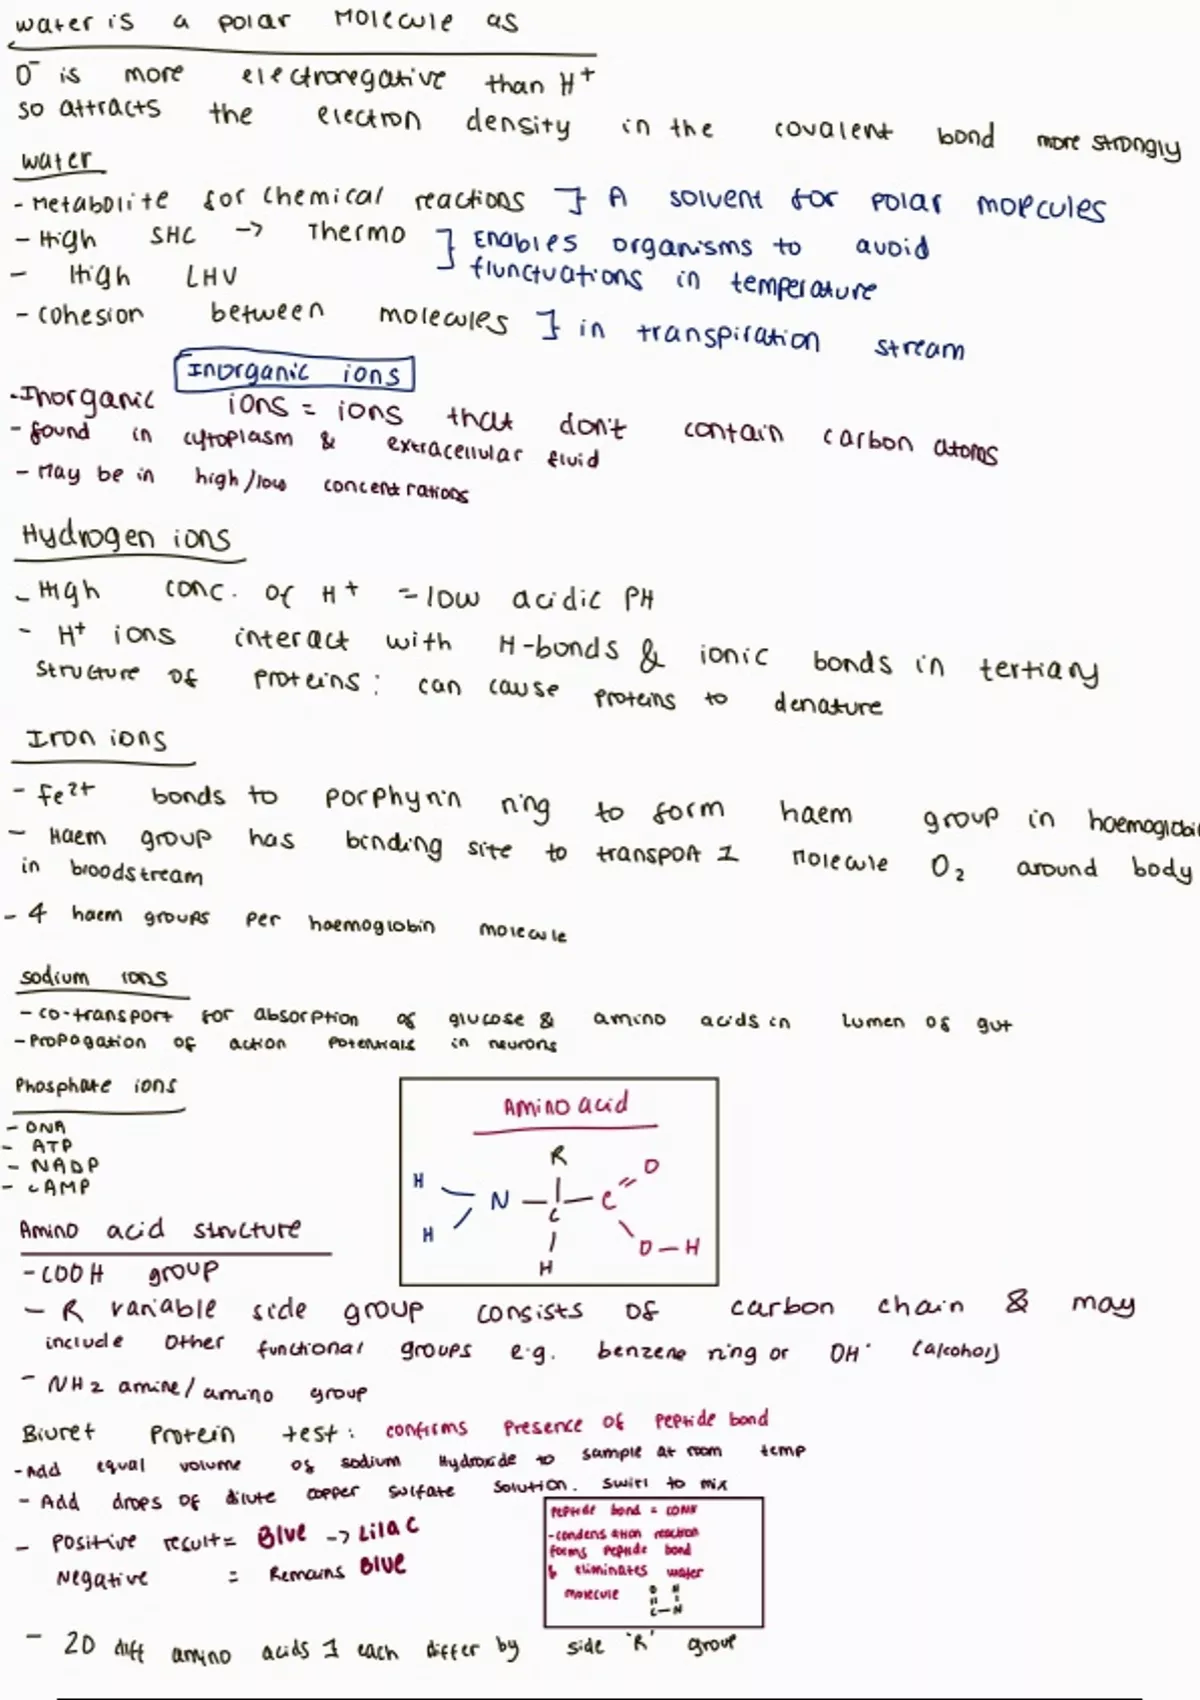 water is a polar Molecule as
O⁻ is more electronegative than H⁺
so attracts the electron density in the covalent bond more strongly
water
- Metabolite for chemical reactions } A solvent for polar molecules
- High SHC -> Thermo } Enables organisms to avoid
- High LHV flunctuations in temperature
- cohesion between molecules } in transpiration stream
Inorganic ions
- Inorganic ions = ions that don't contain carbon atoms
- found in cytoplasm & extracellular fluid
- May be in high/low concentrations
Hydrogen ions
- High conc. of H⁺ = low acidic PH
- H⁺ ions interact with H-bonds & ionic bonds in tertiary
structure of proteins: can cause proteins to denature
Iron ions
- Fe²⁺ bonds to porphyrin ring to form haem group in haemoglobin
- Haem group has binding site to transport 1 molecule O₂ around body
in bloodstream
- 4 haem groups per haemoglobin molecule
sodium ions
- co-transport for absorption of glucose & amino acids in lumen of gut
- Propagation of action potentials in neurons
Phosphate ions
- DNA
- ATP
- NADP
- cAMP
Amino acid
R
H O
N - C - C
H O - H
H
Amino acid structure
- COOH group
- R variable side group consists of carbon chain & may
include other functional groups e.g. benzene ring or OH⁻ (alcohol)
- NH2 amine/amino group
Biuret Protein test: confirms presence of peptide bond
- Add equal volume of sodium Hydroxide to sample at room temp
- Add drops of dilute copper sulfate solution. Swirl to mix
- Positive result = Blue -> Lilac
Negative = Remains Blue
Peptide bond = CONH
- condensation reaction
forms peptide bond
& eliminates water
molecule
O H
C - N
- 20 diff amino acids 1 each differ by side 'R' group